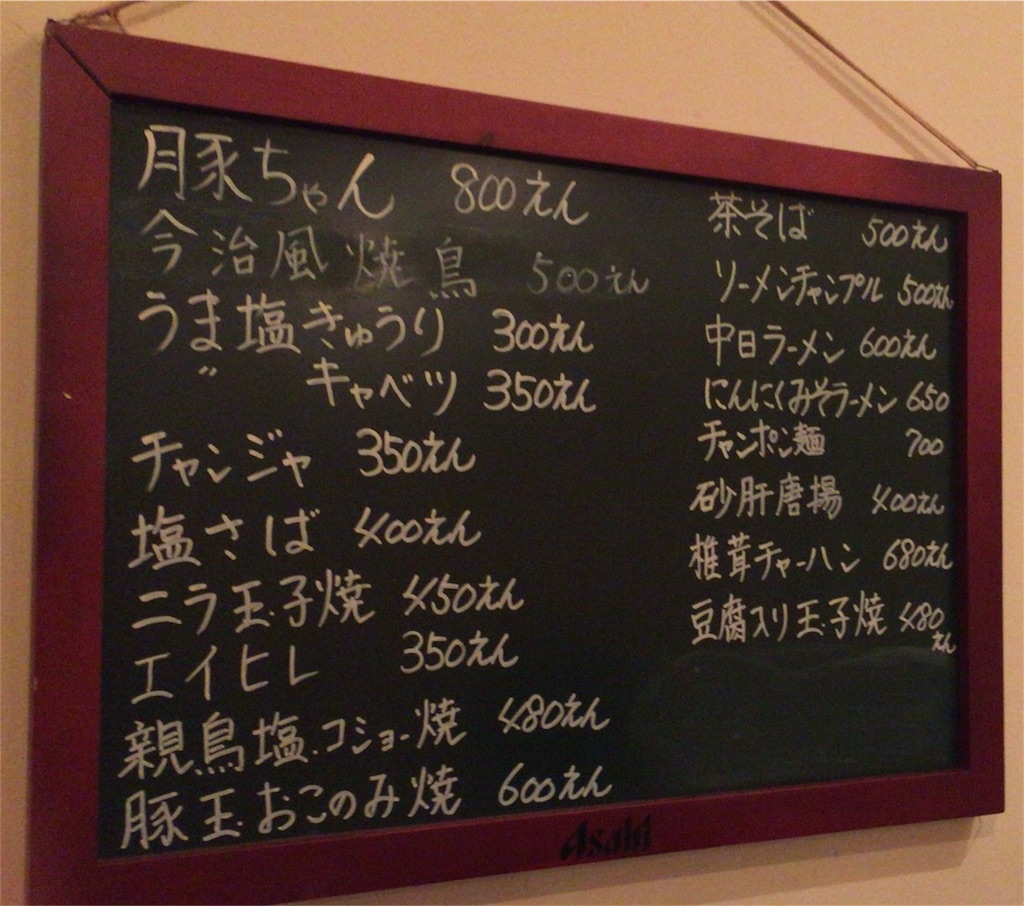 豚ちゃん 800えん
今治風焼鳥 500えん
うま塩きゅうり 300えん
〃 キャベツ 350えん
チャンジャ 350えん
塩さば 400えん
ニラ玉子焼 450えん
エイヒレ 350えん
親鳥塩コショー焼 480えん
豚玉おこのみ焼 600えん
茶そば 500えん
ソーメンチャンプル 500えん
中日ラーメン 600えん
にんにくみそラーメン 650
チャンポン麺 700
砂肝唐揚 400えん
椎茸チャーハン 680えん
豆腐入り玉子焼 480えん
Asahi